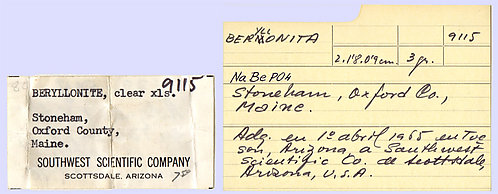 9115
BERYLLONITE, clear xls.
Stoneham,
Oxford County,
Maine.
SOUTHWEST SCIENTIFIC COMPANY
SCOTTSDALE, ARIZONA
7.50
YLL
BERMONITA
9115
2.1'8.0'9 cm.
3 gr.
NaBePO4
Stoneham, Oxford Co.,
Maine.
Adq. en 1º abril 1965 en Tuc
son, Arizona, a Southwest
Scientific Co. de Scottsdale,
Arizona, U.S.A.